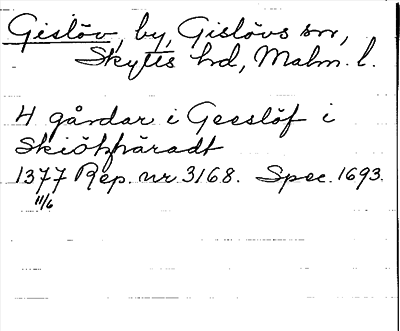 Gislöv, by, Gislövs sn,
Skytts hd, Malm. l.
4 gårdar i Geeslöf i
Skiötzhäradt
1377 Rep. nr 3168. Spec. 1693.
11/6